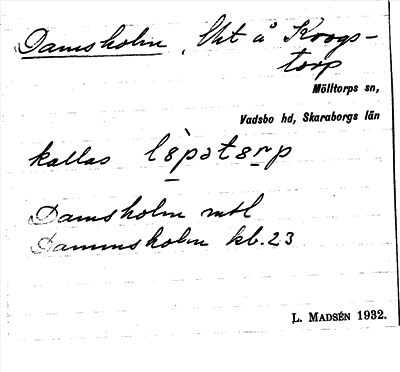 Damsholm, Utt å Krogs-
torp
Mölltorps sn,
Vadsbo hd, Skaraborgs län
kallas
Damsholm mtl
Dammsholm kb. 23
L. MADSÉN 1932.